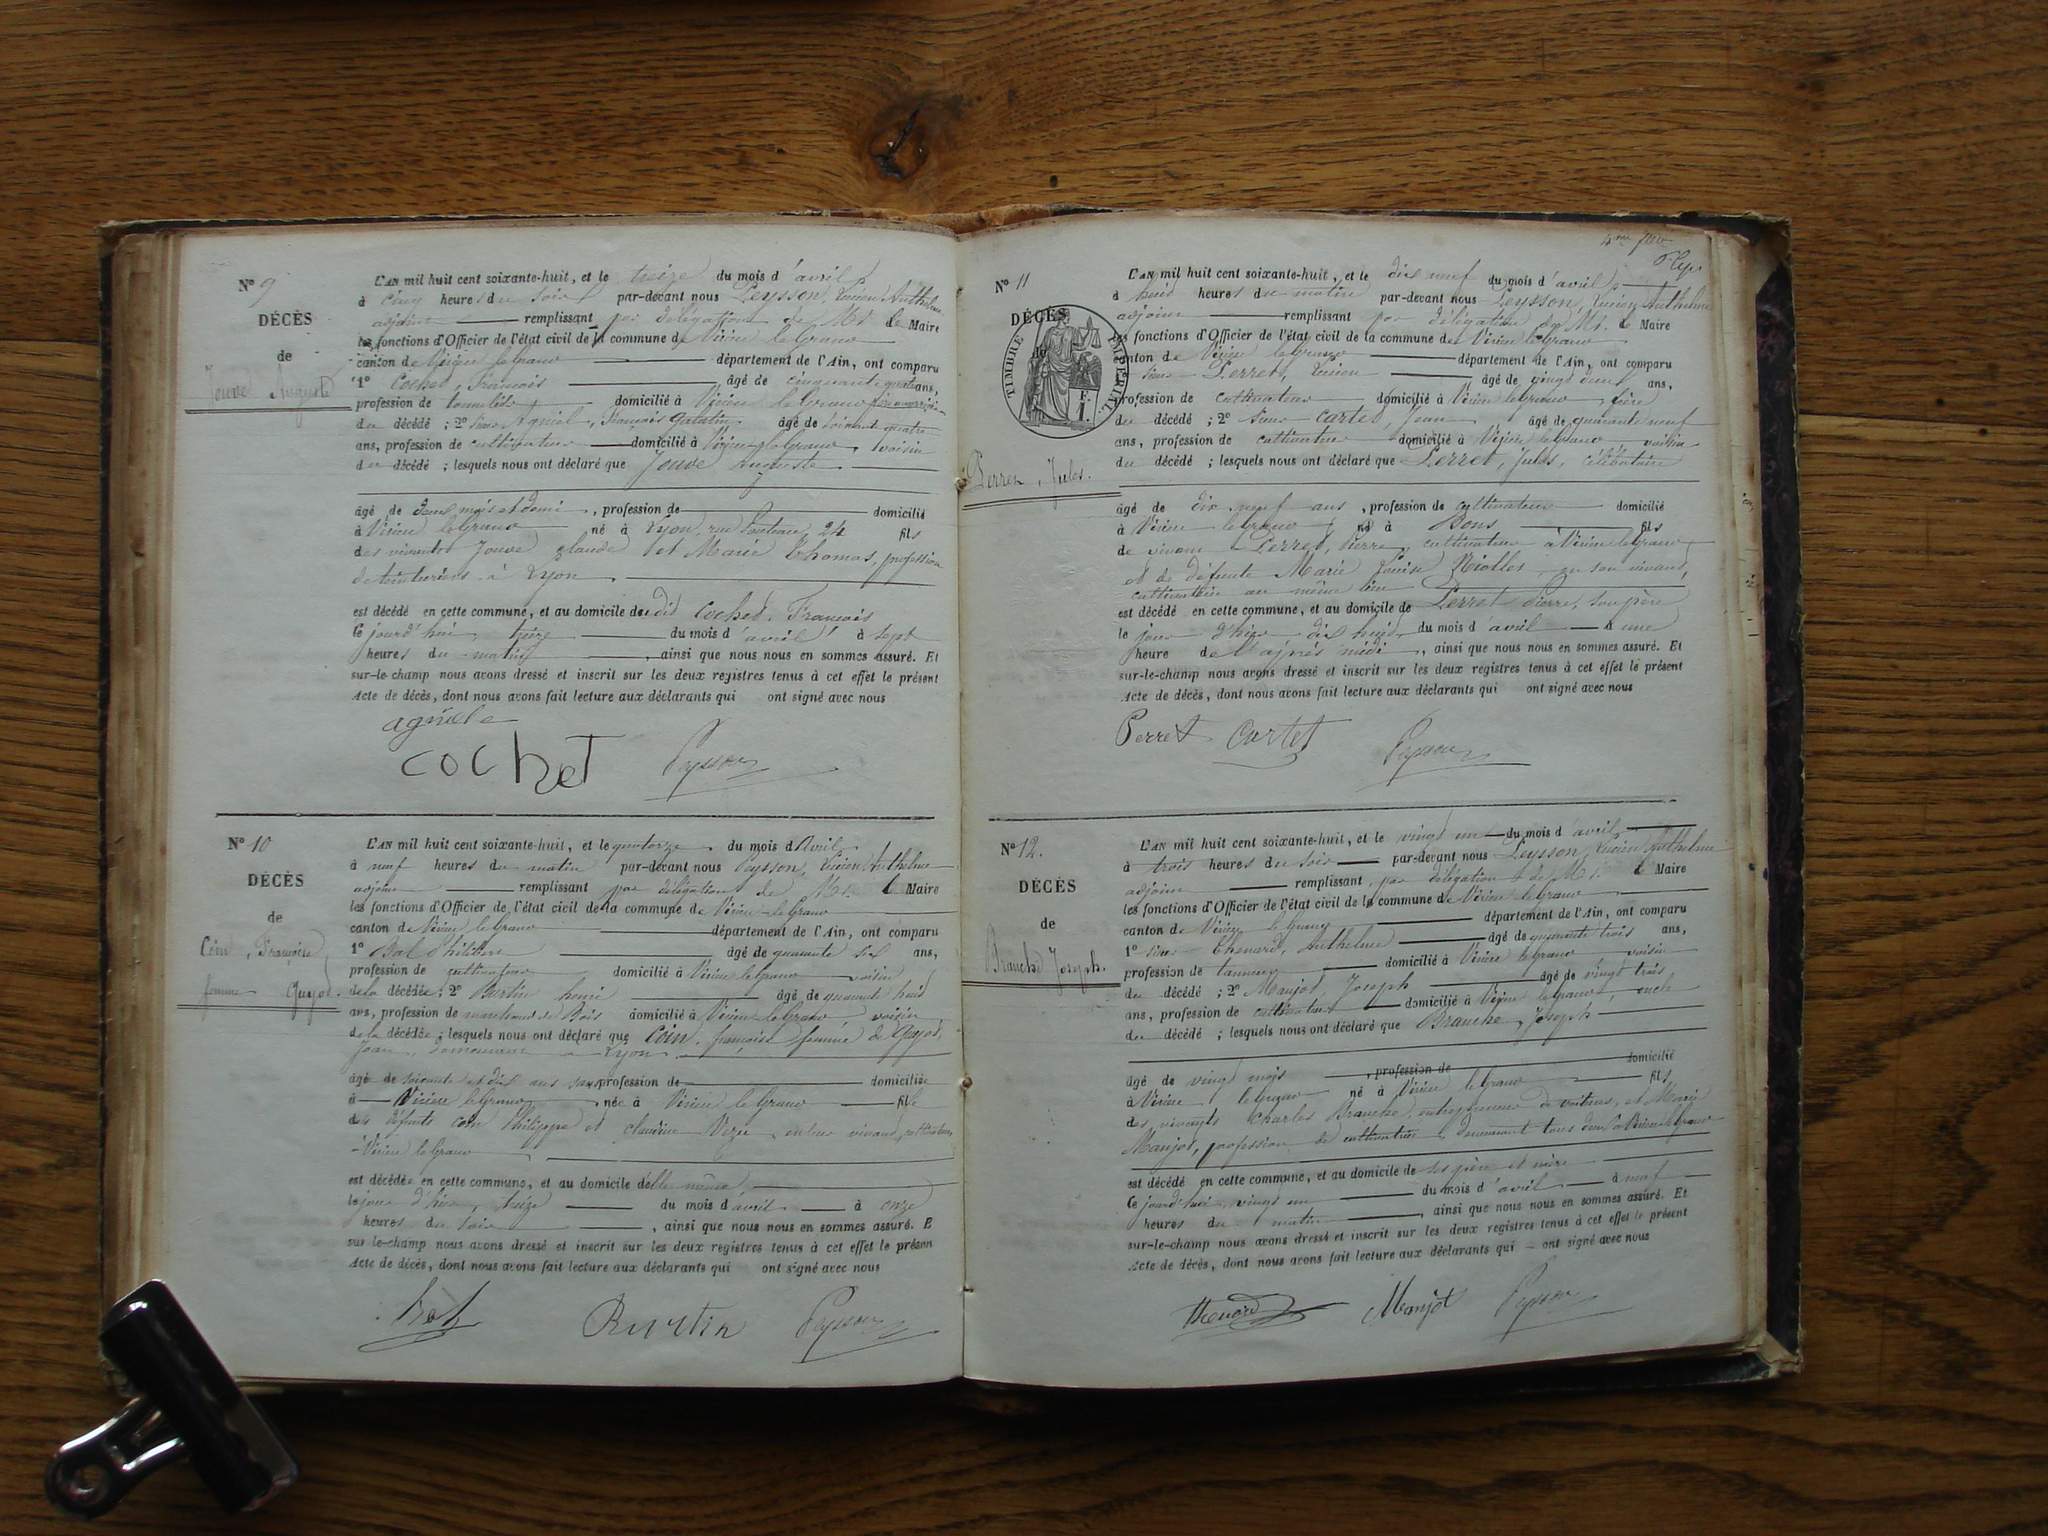 N° 9
DÉCÈS
de
Jouve Auguste
L'AN mil huit cent soixante-huit, et le treize du mois d'avril
à cinq heures du soir par-devant nous Peysson, Lucien Anthelme
adjoint remplissant par délégation de Mr. le Maire
les fonctions d'Officier de l'état civil de la commune de Virieu le Grand
canton de Virieu le Grand département de l'Ain, ont comparu
1° Cochet, François âgé de cinquante quatre ans,
profession de domicilié à Virieu le Grand
du décédé ; 2° sieur François âgé de soixante quatre
ans, profession de cultivateur domicilié à Virieu le Grand, voisin
du décédé ; lesquels nous ont déclaré que Jouve Auguste
âgé de deux mois et demi, profession de domicilié
à Virieu le Grand, né à Lyon, rue 24 fils
des vivants Jouve Claude et Marie Thomas, profession
de teinturiers à Lyon
est décédé en cette commune, et au domicile du dit Cochet, François
le jourd'hui, treize du mois d'avril à sept
heures du matin, ainsi que nous nous en sommes assuré. Et
sur-le-champ nous avons dressé et inscrit sur les deux registres tenus à cet effet le présent
Acte de décès, dont nous avons fait lecture aux déclarants qui ont signé avec nous
cochet Peysson
N° 10
DÉCÈS
de
Coin, Françoise
femme Guyot.
L'AN mil huit cent soixante-huit, et le quatorze du mois d'Avril
à neuf heures du matin par-devant nous Peysson, Lucien Anthelme
adjoint remplissant par délégation de Mr. le Maire
les fonctions d'Officier de l'état civil de la commune de Virieu le Grand
canton de Virieu le Grand département de l'Ain, ont comparu
1° âgé de quarante six ans,
profession de cultivateur domicilié à Virieu le Grand voisin
de la décédée ; 2° Burtin âgé de quarante trois
ans, profession de marchand de Bois domicilié à Virieu le Grand voisin
de la décédée ; lesquels nous ont déclaré que Coin, françoise femme de Guyot,
Jean, demeurant à Lyon
âgé de soixante et dix ans profession de domiciliée
à Virieu le Grand, née à Virieu le Grand fille
des défunts Coin Philippe et Claudine
Virieu le Grand
est décédée en cette commune, et au domicile d'elle même
le jour d'hier, treize du mois d'avril à onze
heures du soir, ainsi que nous nous en sommes assuré. E
sur le-champ nous avons dressé et inscrit sur les deux registres tenus à cet effet le présen
Acte de décès, dont nous avons fait lecture aux déclarants qui ont signé avec nous
Burtin Peysson
N° 11
DÉCÈS
TIMBRE IMPÉRIAL
Perret, Jules.
L'AN mil huit cent soixante-huit, et le dix neuf du mois d'avril
à huit heures du matin par-devant nous Peysson, Lucien Anthelme
adjoint remplissant par délégation de Mr. le Maire
les fonctions d'Officier de l'état civil de la commune de Virieu le Grand
canton de Virieu le Grand département de l'Ain, ont comparu
sieur Perret, Lucien âgé de vingt deux ans,
profession de cultivateur domicilié à Virieu le Grand, frère
du décédé ; 2° sieur Cartet, Jean âgé de quarante neuf
ans, profession de cultivateur domicilié à Virieu le Grand voisin
du décédé ; lesquels nous ont déclaré que Perret, Jules, célibataire
âgé de dix neuf ans, profession de cultivateur domicilié
à Virieu le Grand né à Bons fils
de vivant Perret, Pierre, cultivateur à Virieu le Grand
et de défunte Marie Louise en son vivant,
cultivatrice au même lieu
est décédé en cette commune, et au domicile de Perret Pierre, son père
le jour d'hier dix huit du mois d'avril à une
heure de l'après midi, ainsi que nous nous en sommes assuré. Et
sur-le-champ nous avons dressé et inscrit sur les deux registres tenus à cet effet le présent
Acte de décès, dont nous avons fait lecture aux déclarants qui ont signé avec nous
Perret Cartet Peysson
N° 12.
DÉCÈS
de
Branche Joseph.
L'AN mil huit cent soixante-huit, et le vingt un du mois d'avril
à trois heures du soir par-devant nous Peysson, Lucien Anthelme
adjoint remplissant par délégation de Mr. le Maire
les fonctions d'Officier de l'état civil de la commune de Virieu le Grand
canton de Virieu le Grand département de l'Ain, ont comparu
1° sieur Thenard, Anthelme âgé de quarante trois ans,
profession de tanneur domicilié à Virieu le Grand voisin
du décédé ; 2° Manjot, Joseph âgé de vingt trois
ans, profession de cultivateur domicilié à Virieu le Grand, oncle
du décédé ; lesquels nous ont déclaré que Branche, Joseph
âgé de vingt mois, profession de domicilié
à Virieu le Grand né à Virieu le Grand fils
des vivants Charles Branche, entrepreneur de voitures, et Marie
Manjot, profession de cultivatrice, demeurant tous deux à Virieu le Grand
est décédé en cette commune, et au domicile de ses père et mère
le jourd'hui, vingt un du mois d'avril à neuf
heures du matin, ainsi que nous nous en sommes assuré. Et
sur-le-champ nous avons dressé et inscrit sur les deux registres tenus à cet effet le présent
Acte de décès, dont nous avons fait lecture aux déclarants qui ont signé avec nous
Thenard Manjot Peysson